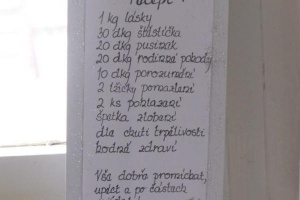 recept
1 kg lásky
30 dkg štěstíčka
20 dkg pusinek
20 dkg rodinné pohody
10 dkg porozumění
2 lžičky pomazlení
2 ks pohlazení
špetka zlobení
dle chuti trpělivosti
hodně zdraví
Vše dobře promíchat,
upéct a po částech